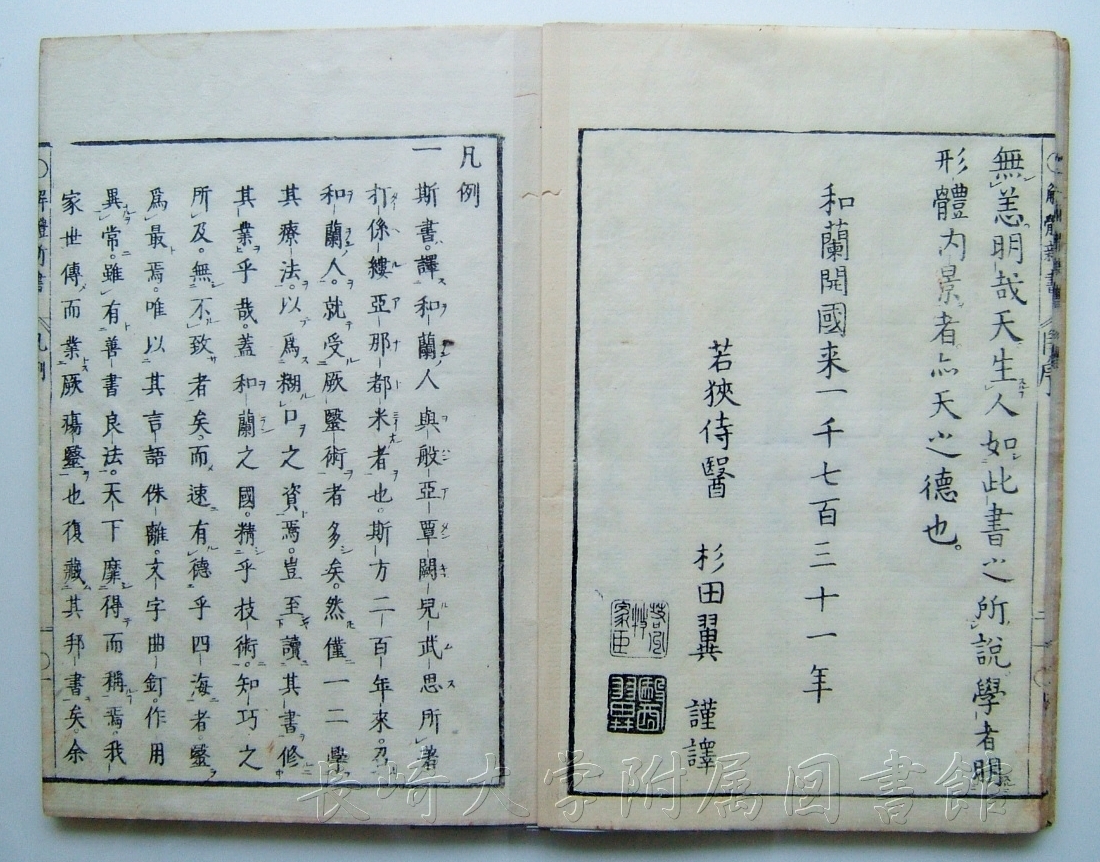 無恙明哉天生人如此書之所説學者明
形體内景者亦天之德也。
和蘭開國来一千七百三十一年
若狹侍醫 杉田翼 謹譯
凡例
一斯書。譯和蘭人與般亞覃闕兒武思所著
打係縷亞那都米者也。斯方二百年來。
和蘭人。就受厥毉術者多矣。然僅一二學
其療法。以爲糊口之資焉。豈至讀其書修
其業乎哉。蓋和蘭之國。精乎技術。知巧之
所及。無不致者矣。而速有德乎四海者毉
爲最焉。唯以其言語侏離。文字曲釘。作用
異常。雖有善書良法。天下靡得而稱焉。我
家世傳而業厥瘍毉也。復藏其邦書矣。余
解體新書 凡例
長崎大学附属図書館